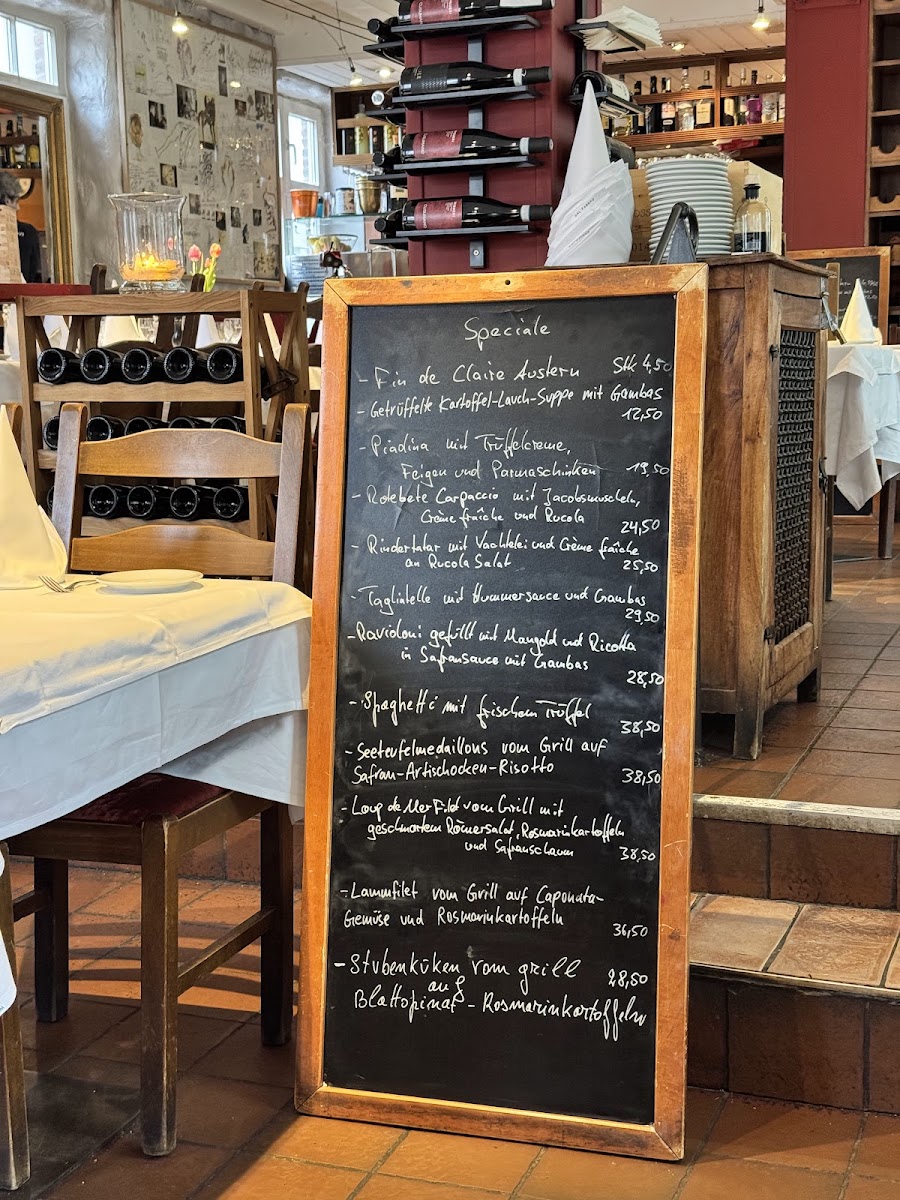 Speciale
- Fin de Claire Austern Stk 4,50
- Getrüffelte Kartoffel-Lauch-Suppe mit Gambas
12,50
- Piadina mit Trüffelcreme,
Feigen und Parmaschinken 19,50
- Rotebete Carpaccio mit Jacobsmuscheln,
Crème fraîche und Rucola
24,50
- Rindertatar mit Wachtelei und Crème fraîche
an Rucola Salat 25,50
- Tagliatelle mit Hummersauce und Gambas
29,50
- Ravioloni gefüllt mit Mangold und Ricotta
in Safransauce mit Gambas
28,50
- Spaghetti mit frischem Trüffel
38,50
- Seeteufelmedaillons vom Grill auf
Safran-Artischocken-Risotto 38,50
- Loup de Mer Filet vom Grill mit
geschmortem Römersalat, Rosmarinkartoffeln
und Safranschaum 38,50
- Lammfilet vom Grill auf Caponata-
Gemüse und Rosmarinkartoffeln
36,50
- Stubenküken vom grill 28,50
auf
Blattspinat - Rosmarinkartoffeln